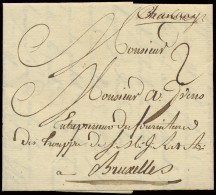 Charleroy
Monsieur
2
Monsieur
Entrepreneur des fournitures
des trouppes de S. M.
a
Bruxelles